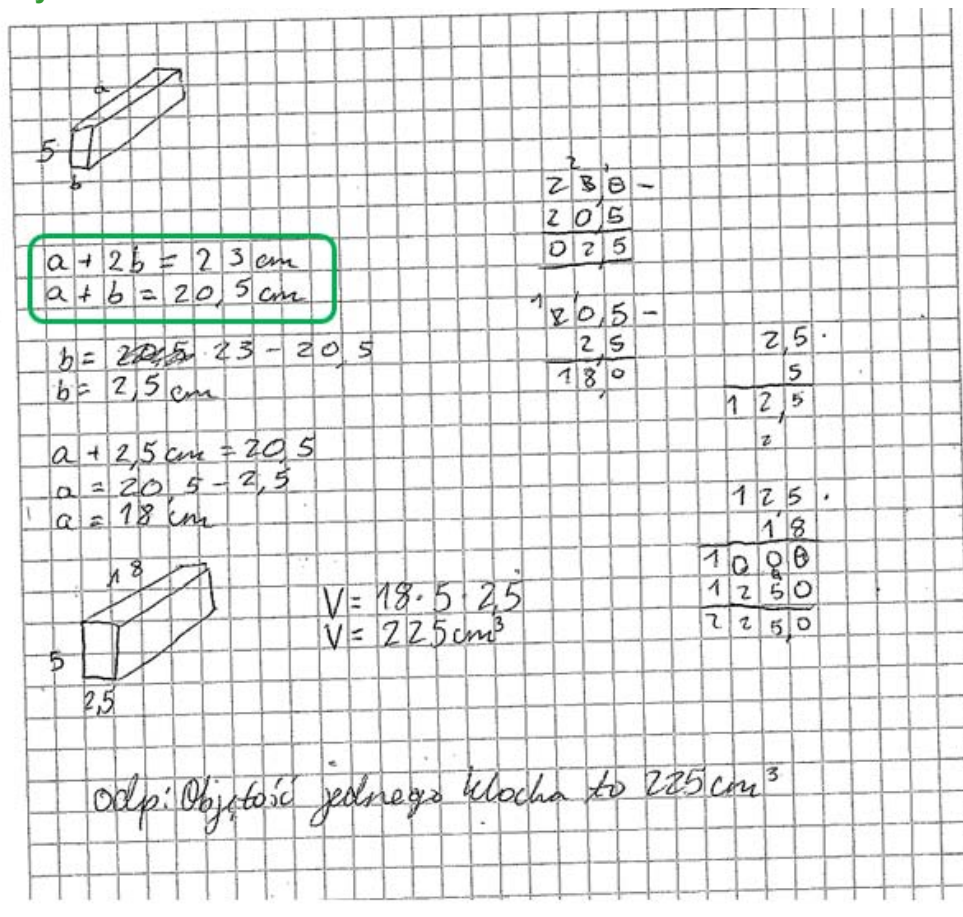 a
5
b
a + 2b = 23 cm
a + b = 20,5 cm
b = 20,5 23 - 20,5
b = 2,5 cm
a + 2,5 cm = 20,5
a = 20,5 - 2,5
a = 18 cm
18
5
2,5
V = 18 · 5 · 2,5
V = 225 cm³
2
23,0 -
20,5
02,5
1
20,5 -
2,5
18,0
2,5 ·
5
12,5
2
125 ·
18
1000
1250
2250,0
odp: Objętość jednego klocka to 225 cm³